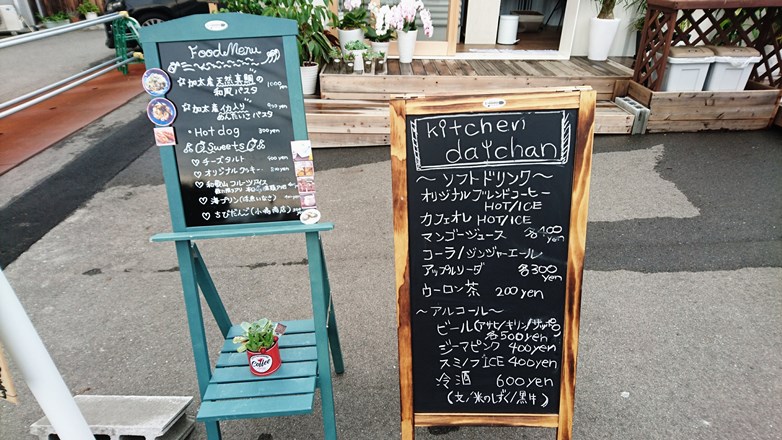 Food Menu
☆加太産天然真鯛の
和風パスタ 1000yen
☆加太産
めんたいこパスタ
• Hot dog 300yen
Sweets
♡チーズタルト
♡オリジナルクッキー
♡和歌山フルーツアイス
♡海プリン
♡ちびだんご
kitchen
daichan
～ソフトドリンク～
オリジナルブレンドコーヒー
HOT/ICE
カフェオレ HOT/ICE
マンゴージュース 各400
yen
コーラ/ジンジャーエール
アップルソーダ 各300
yen
ウーロン茶 200yen
～アルコール～
ビール(アサヒ/キリン/サッポロ)
各500yen
ジーマピンク 400yen
スミノフICE 400yen
冷酒 600yen
Coffee